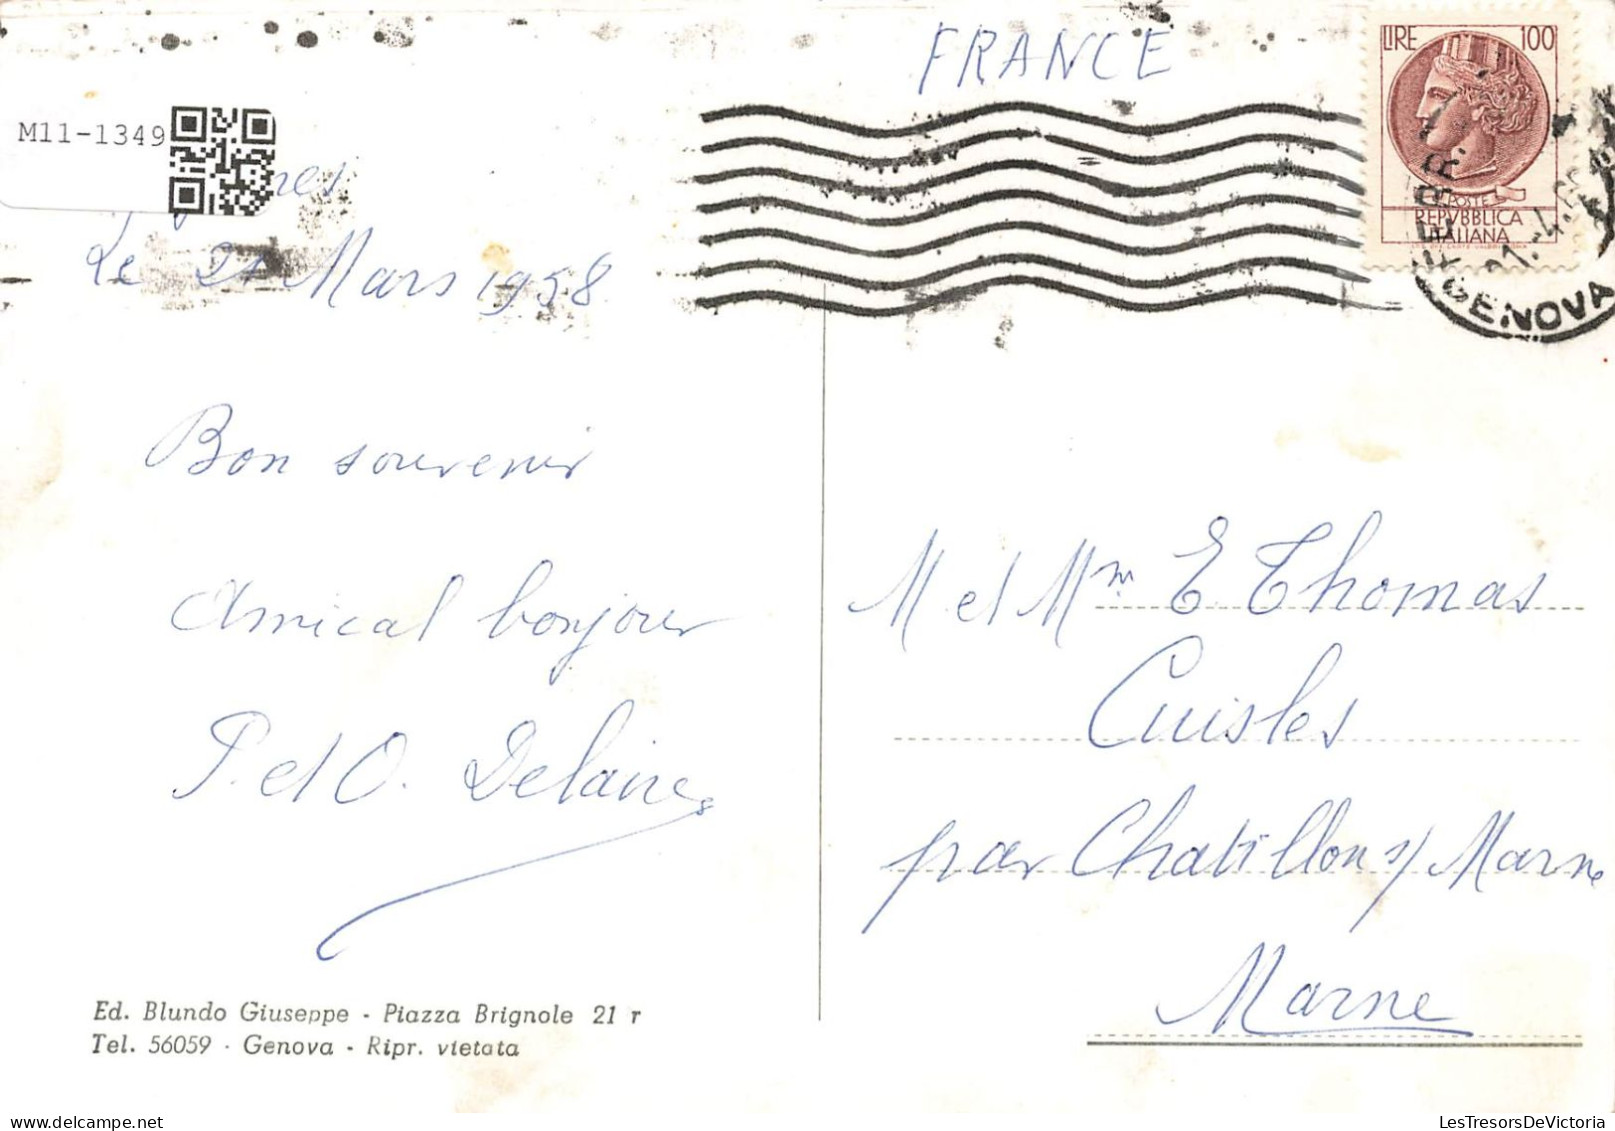 FRANCE
LIRE 100
POSTE
REPVBBLICA
ITALIANA
GENOVA
M11-1349
Le 21 Mars 1958
Bon souvenir
Amical bonjour
P. et O. Delaire
M et Mm E Thomas
Cuisles
par Chatillon s/ Marne
Marne
Ed. Blundo Giuseppe - Piazza Brignole 21 r
Tel. 56059 - Genova - Ripr. vietata
LesTresorsDeVictoria.com